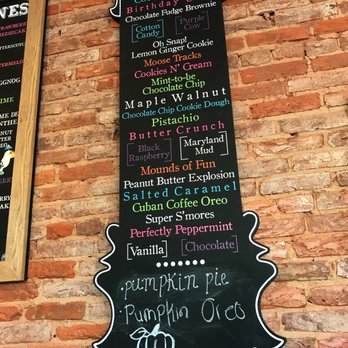 NES
Birthday
Chocolate Fudge Brownie
Cotton Candy
Purple Cow
Oh Snap!
Lemon Ginger Cookie
Moose Tracks
Cookies N' Cream
Mint-to-be
Chocolate Chip
Maple Walnut
Chocolate Chip Cookie Dough
Pistachio
Butter Crunch
Black Raspberry
Maryland Mud
Mounds of Fun
Peanut Butter Explosion
Salted Caramel
Cuban Coffee Oreo
Super S'mores
Perfectly Peppermint
Vanilla
Chocolate
·pumpkin pie
·Pumpkin Oreo